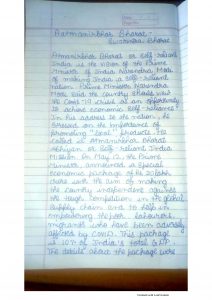 Aatmanirbhar Bharat -
Swatantra Bharat
Atmanirbhar Bharat or self-reliant
India is the vision of the Prime
Minister of India Narendra Modi
of making India a self-reliant
nation. Prime Minister Narendra
Modi said the country should view
the Covid-19 crisis as an opportunity
to achieve economic self-reliance.
In his address to the nation, he
stressed on the importance of
promoting "local" products. He
called it Atmanirbhar Bharat
Abhiyan or Self-reliant India
Mission. On May 12, the Prime
Minister announced a special
economic package of Rs 20 lakh
crore with the aim of making
the country independent against
the tough competition in the global
supply chain and to help in
empowering the poor labourers,
migrants who have been adversely
affected by COVID. This package
is 10% of India's total GDP.
The details about the package were